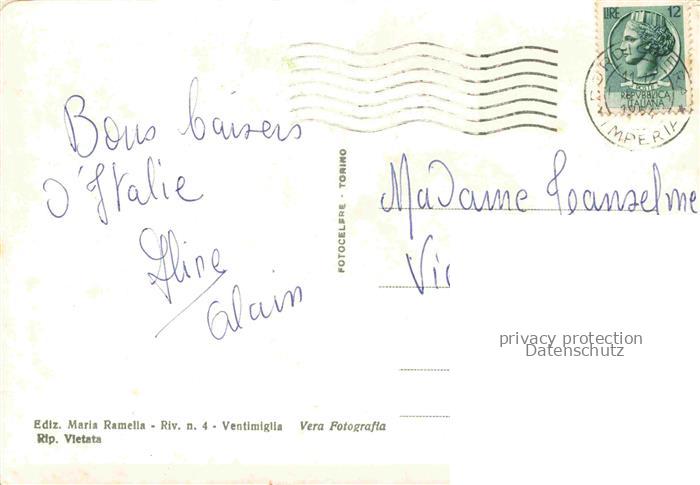 LIRE 12
POSTE
REPVBBLICA
ITALIANA
IMPERIA
Bons baisers
d'Italie
Aline
Alain
FOTOCELERE - TORINO
Madame
Vir
privacy protection
Datenschutz
Ediz. Maria Ramella - Riv. n. 4 - Ventimiglia Vera Fotografia
Rip. Vietata